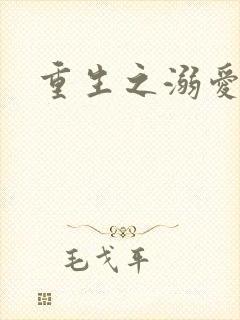 重生之溺愛
毛戈平